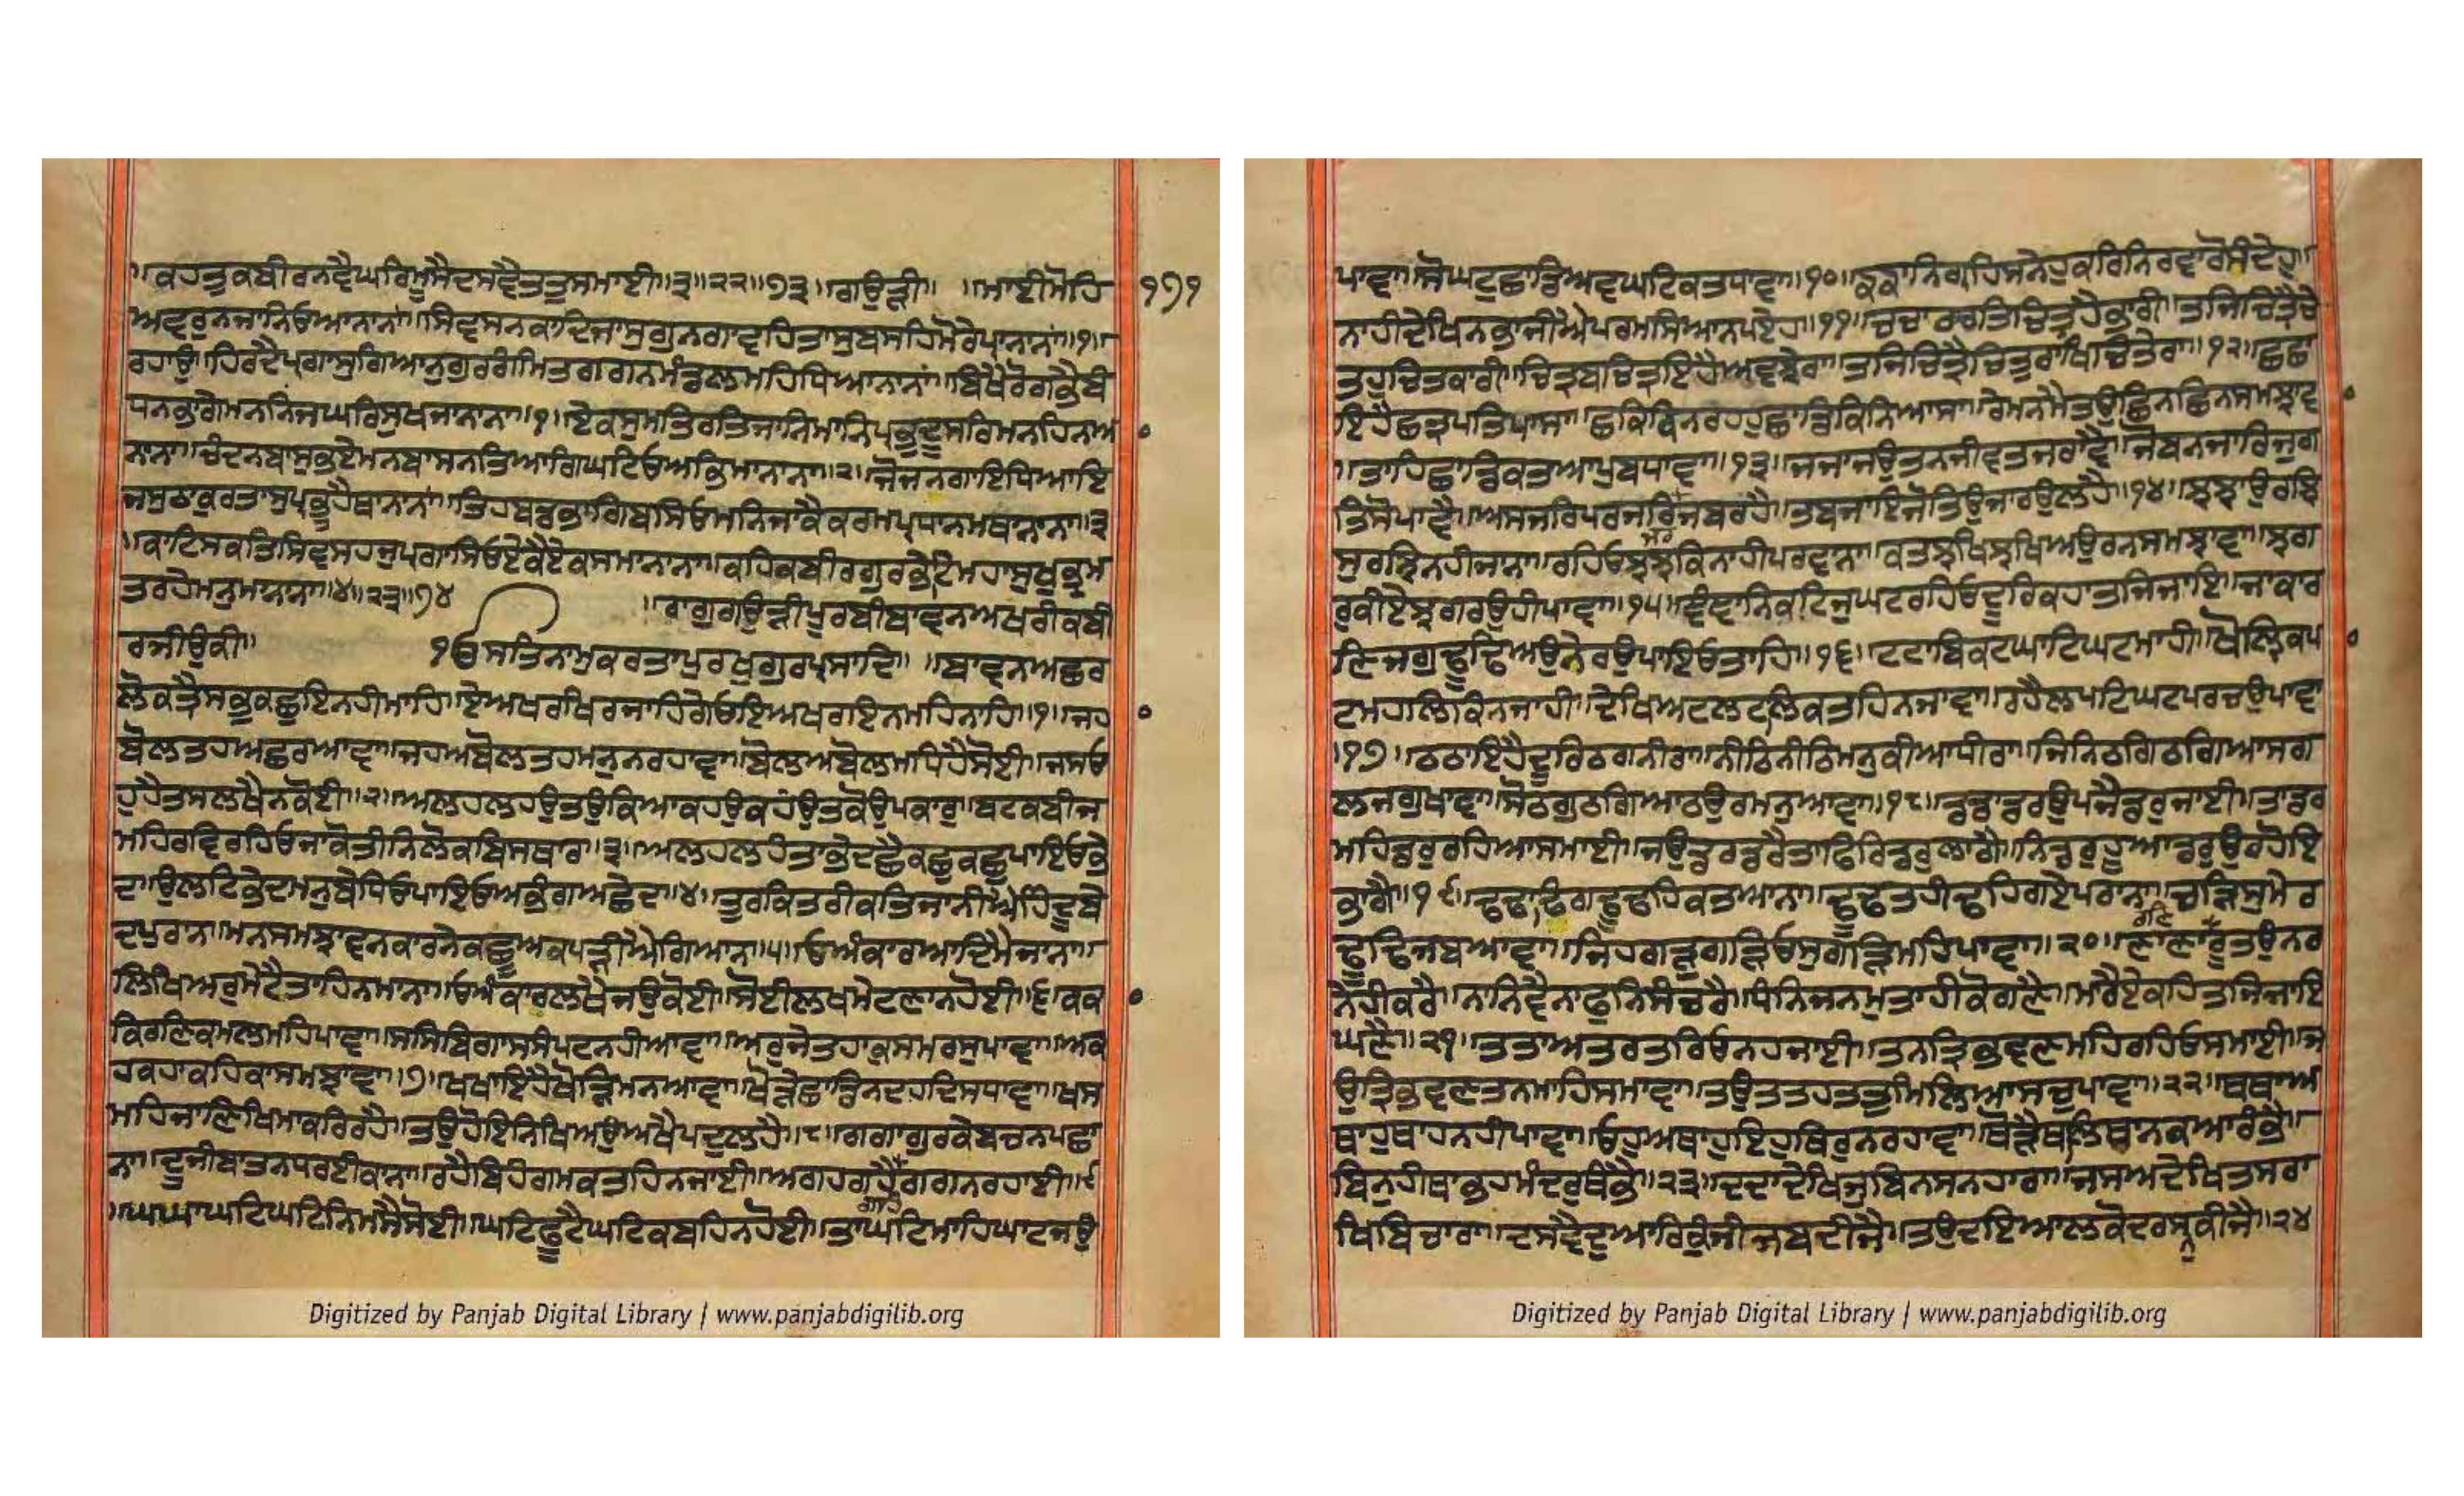 ।।ਕਹਤੁਕਬੀਰਨਵੈਘਰਿਮੂਸੈਦਸਵੈਤਤੁਸਮਾਈ।।੩।।੨੨।।੭੩।।ਗਉੜੀ।। ।।ਮਾਈਮੋਹਿ ੧੭੧
ਅਵਰੁਨਜਾਨਿਓਆਨਾਨਾਂ।।ਸਿਵਸਨਕਾਦਿਜਾਸੁਗੁਨਗਾਵਹਿਤਾਸੁਬਸਹਿਮੋਰੇਪ੍ਰਾਨਾਨਾਂ।।੧।।
ਰਹਾਉ।।ਹਿਰਦੈਪ੍ਰਗਾਸੁਗਿਆਨਗੁਰਗੰਮਿਤਗਗਨਮੰਡਲਮਹਿਧਿਆਨਾਨਾਂ।।ਬਿਖੈਰੋਗਭੈਬੰ
ਧਨਭਾਗੇਮਨਨਿਜਘਰਿਸੁਖਜਾਨਾਨਾ।।੧।।ਏਕਸੁਮਤਿਰਤਿਜਾਨਿਮਾਨਿਪ੍ਰਭਦੂਸਰਮਨਹਿਨਆ
ਨਾਨਾ।।ਚੰਦਨਬਾਸੁਭਏਮਨਬਾਸਨਤਿਆਗਿਘਟਿਓਅਭਿਮਾਨਾਨਾ।।੨।।ਜੋਜਨਗਾਇਧਿਆਇ
ਜਸੁਠਾਕੁਰਤਾਸੁਪ੍ਰਭੂਹੈਥਾਨਾਨਾਂ।।ਤਿਹਬਡਭਾਗਿਬਸਿਓਮਨਿਜਾਕੈਕਰਮਪ੍ਰਧਾਨਮਥਾਨਾਨਾ।।੩
।।ਕਾਟਿਸਕਤਿਸਿਵਸਹਜੁਪ੍ਰਗਾਸਿਓਏਕੈਏਕਸਮਾਨਾਨਾ।।ਕਹਿਕਬੀਰਗੁਰਭੇਟਿਮਹਾਸੁਖਭ੍ਰਮ
ਤਰਹੇਮਨੁਮਾਨਾਨਾ।।੪।।੨੩।।੭੪ ।।ਰਾਗੁਗਉੜੀਪੂਰਬੀਬਾਵਨਅਖਰੀਕਬੀ
ਰਜੀਉਕੀ।। ੴਸਤਿਨਾਮੁਕਰਤਾਪੁਰਖੁਗੁਰਪ੍ਰਸਾਦਿ।। ।।ਬਾਵਨਅਛਰ
ਲੋਕਤ੍ਰੈਸਭਕਛੁਇਨਹੀਮਾਹਿ।।ਏਅਖਰਖਿਰਜਾਹਿਗੇਓਇਅਖਰਇਨਮਹਿਨਾਹਿ।।੧।।ਜਹਾ
ਬੋਲਤਹਅਛਰਆਵਾ।।ਜਹਅਬੋਲਤਹਮਨੁਨਰਹਾਵਾ।।ਬੋਲਅਬੋਲਮਧਿਹੈਸੋਈ।।ਜਸਓ
ਹੁਹੈਤਸਲਖੈਨਕੋਈ।।੨।।ਅਲਹਲਹਉਤਉਕਿਆਕਹਉਕਹਉਤਕੋਉਪਕਾਰ।।ਬਟਕਬੀਜ
ਮਹਿਰਵਿਰਹਿਓਜਾਕੋਤੀਨਿਲੋਕਬਿਸਥਾਰ।।੩।।ਅਲਹਲਹੰਤਾਭੇਦਛੈਕਛੁਕਛੁਪਾਇਓਭੇ
ਦ।।ਉਲਟਿਭੇਦਮਨੁਬੇਧਿਓਪਾਇਓਅਭੰਗਅਛੇਦ।।੪।।ਤੁਰਕਤਰੀਕਤਿਜਾਨੀਐਹਿੰਦੂਬੇ
ਦਪੁਰਾਨ।।ਮਨਸਮਝਾਵਨਕਾਰਨੇਕਛੂਅਕਪੜੀਐਗਿਆਨ।।੫।।ਓਅੰਕਾਰਆਦਿਮੈਜਾਨਾ।।
ਲਿਖਿਅਰੁਮੇਟੈਤਾਹਿਨਮਾਨਾ।।ਓਅੰਕਾਰਲਖੈਜਉਕੋਈ।।ਸੋਈਲਖਮੇਟਣਾਨਹੋਈ।।੬।।ਕਕਾ
ਕਿਰਣਿਕਮਲਮਹਿਪਾਵਾ।।ਸਸਿਬਿਗਾਸਸੰਪਟਨਹੀਆਵਾ।।ਅਰੁਜੇਤਹਾਕੁਸਮਰਸੁਪਾਵਾ।।ਅਕ
ਹਕਹਾਕਹਿਕਾਸਮਝਾਵਾ।।੭।।ਖਖਾਇਹੈਖੋੜਿਮਨਆਵਾ।।ਖੋੜੇਛਾਡਿਨਦਹਦਿਸਧਾਵਾ।।ਖਸ
ਮਹਿਜਾਣਿਖਿਮਾਕਰਿਰਹੈ।।ਤਉਹੋਇਨਿਖਿਅਉਅਖੈਪਦੁਲਹੈ।।੮।।ਗਗਾਗੁਰਕੇਬਚਨਪਛਾ
ਨਾ।।ਦੂਜੀਬਾਤਨਧਰਈਕਾਨਾ।।ਰਹੈਬਿਹੰਗਮਕਤਹਿਨਜਾਈ।।ਅਗਹਗਹੈਗਗਨਰਹਾਈ।।੯
ਗਹਿ
।।ਘਘਾਘਟਿਘਟਿਨਿਮਸੈਸੋਈ।।ਘਟਿਫੂਟੈਘਟਿਕਬਹਿਨਹੋਈ।।ਤਾਘਟਿਮਾਹਿਘਾਟਜਉ
ਪਾਵਾ।।ਸੋਘਟੁਛਾਡਿਅਵਘਟਿਕਤਧਾਵਾ।।੧੦।।ਙਙਾਨਿਗ੍ਰਹਿਸਨੇਹੁਕਰਿਨਿਰਵਾਰੋਸੰਦੇਹੁ।।
ਨਾਹੀਦੇਖਿਨਭਾਜੀਐਪਰਮਸਿਆਨਪਏਹ।।੧੧।।ਚਚਾਰਚਤਿਚਿਤ੍ਰਹੈਭਾਰੀ।।ਤਜਿਚਿਤ੍ਰੈਚੇ
ਤਹੁਚਿਤਕਾਰੀ।।ਚਿਤ੍ਰਬਚਿਤ੍ਰਇਹੈਅਵਝੇਰਾ।।ਤਜਿਚਿਤ੍ਰੈਚਿਤੁਰਾਖਿਚਿਤੇਰਾ।।੧੨।।ਛਛਾ
ਇਹੈਛਤ੍ਰਪਤਿਪਾਸਾ।।ਛਕਿਕਿਨਰਹਹੁਛਾਡਿਕਿਨਿਆਸਾ।।ਰੇਮਨਮੈਤਉਛਿਨਛਿਨਸਮਝਾਵ
।।ਤਾਹਿਛਾਡਿਕਤਆਪੁਬਧਾਵਾ।।੧੩।।ਜਜਾਜਉਤਨਜੀਵਤਜਰਾਵੈ।।ਜੋਬਨਜਾਰਿਜੁਗ
ਤਿਸੋਪਾਵੈ।।ਅਸਜਰਿਪਰਜਰਿਜਬਰਹੈ।।ਤਬਜਾਇਜੋਤਿਉਜਾਰਉਲਹੈ।।੧੪।।ਝਝਾਉਰਝਿ
ਸੁਰਝਿਨਹੀਜਾਨਾ।।ਰਹਿਓਝਝਕਿਨਾਹੀਪਰਵਾਨਾ।।ਕਤਝਖਿਝਖਿਅਉਰਨਸਮਝਾਵਾ।।ਝਗ
ਰੁਕੀਏਝਗਰਉਹੀਪਾਵਾ।।੧੫।।ਞੰਞਾਨਿਕਟਿਜੁਘਟਰਹਿਓਦੂਰਿਕਹਾਤਜਿਜਾਇ।।ਜਾਕਾਰ
ਣਿਜਗੁਢੂਢਿਅਉਨੇਰਉਪਾਇਓਤਾਹਿ।।੧੬।।ਟਟਾਬਿਕਟਘਾਟਿਘਟਮਾਹੀ।।ਖੋਲਿਕਪਾ
ਟਮਹਲਿਕਿਨਜਾਹੀ।।ਦੇਖਿਅਟਲਟਲਿਕਤਹਿਨਜਾਵਾ।।ਰਹੈਲਪਟਿਘਟਪਰਚਉਪਾਵਾ
।।੧੭।।ਠਠਾਇਹੈਦੂਰਿਠਗਨੀਰਾ।।ਨੀਠਿਨੀਠਿਮਨੁਕੀਆਧੀਰਾ।।ਜਿਨਿਠਗਿਠਗਿਆਸਗ
ਲਜਗੁਖਾਵਾ।।ਸੋਠਗੁਠਗਿਆਠਉਰਮਨੁਆਵਾ।।੧੮।।ਡਡਾਡਰਉਪਜੈਡਰੁਜਾਈ।।ਤਾਡਰ
ਮਹਿਡਰੁਰਹਿਆਸਮਾਈ।।ਜਉਡਰਡਰੈਤਾਫਿਰਿਡਰੁਲਾਗੈ।।ਨਿਡਰੁਹੂਆਡਰੁਉਰਹੋਇ
ਭਾਗੈ।।੧੯।।ਢਢਾਢਿਗਢੂਢਹਿਕਤਆਨਾ।।ਢੂਢਤਹੀਢਹਿਗਏਪਰਾਨਾ।।ਚੜਿਸੁਮੇਰ
ਢੂਢਿਜਬਆਵਾ।।ਜਿਹਗੜੁਗੜਿਓਸੁਗੜਮਹਿਪਾਵਾ।।੨੦।।ਣਾਣਾਰੂਤਉਨਰ
ਨੇਹੀਕਰੈ।।ਨਾਨਿਵੈਨਾਫੁਨਿਸੰਚਰੈ।।ਧੰਨਿਜਨਮੁਤਾਹੀਕੋਗਣੈ।।ਮਾਰੈਏਕਹਿਤਜਿਜਾਇ
ਘਣੈ।।੨੧।।ਤਤਾਅਤਰਤਰਿਓਨਹਜਾਈ।।ਤਨਤ੍ਰਿਭਵਣਮਹਿਰਹਿਓਸਮਾਈ।।ਜ
ਉਤ੍ਰਿਭਵਣਤਨਮਾਹਿਸਮਾਵਾ।।ਤਉਤਤਹਤਤੁਮਿਲਿਆਸਚੁਪਾਵਾ।।੨੨।।ਥਥਾਅ
ਥਾਹਥਾਹਨਹੀਪਾਵਾ।।ਓਹੁਅਥਾਹਇਹੁਥਿਰੁਨਰਹਾਵਾ।।ਥੋੜੈਥਲਿਥਾਨਕਆਰੰਭੈ।।
ਬਿਨੁਹੀਥਾਭਹਮੰਦਰੁਥੰਭੈ।।੨੩।।ਦਦਾਦੇਖਿਜੁਬਿਨਸਨਹਾਰਾ।।ਜਸਅਦੇਖਿਤਸਰਾ
ਖਿਬਿਚਾਰਾ।।ਦਸਵੈਦੁਆਰਿਕੁੰਜੀਜਬਦੀਜੈ।।ਤਉਦਇਆਲਕੋਦਰਸਨੁਕੀਜੈ।।੨੪
Digitized by Panjab Digital Library | www.panjabdigilib.org
Digitized by Panjab Digital Library | www.panjabdigilib.org